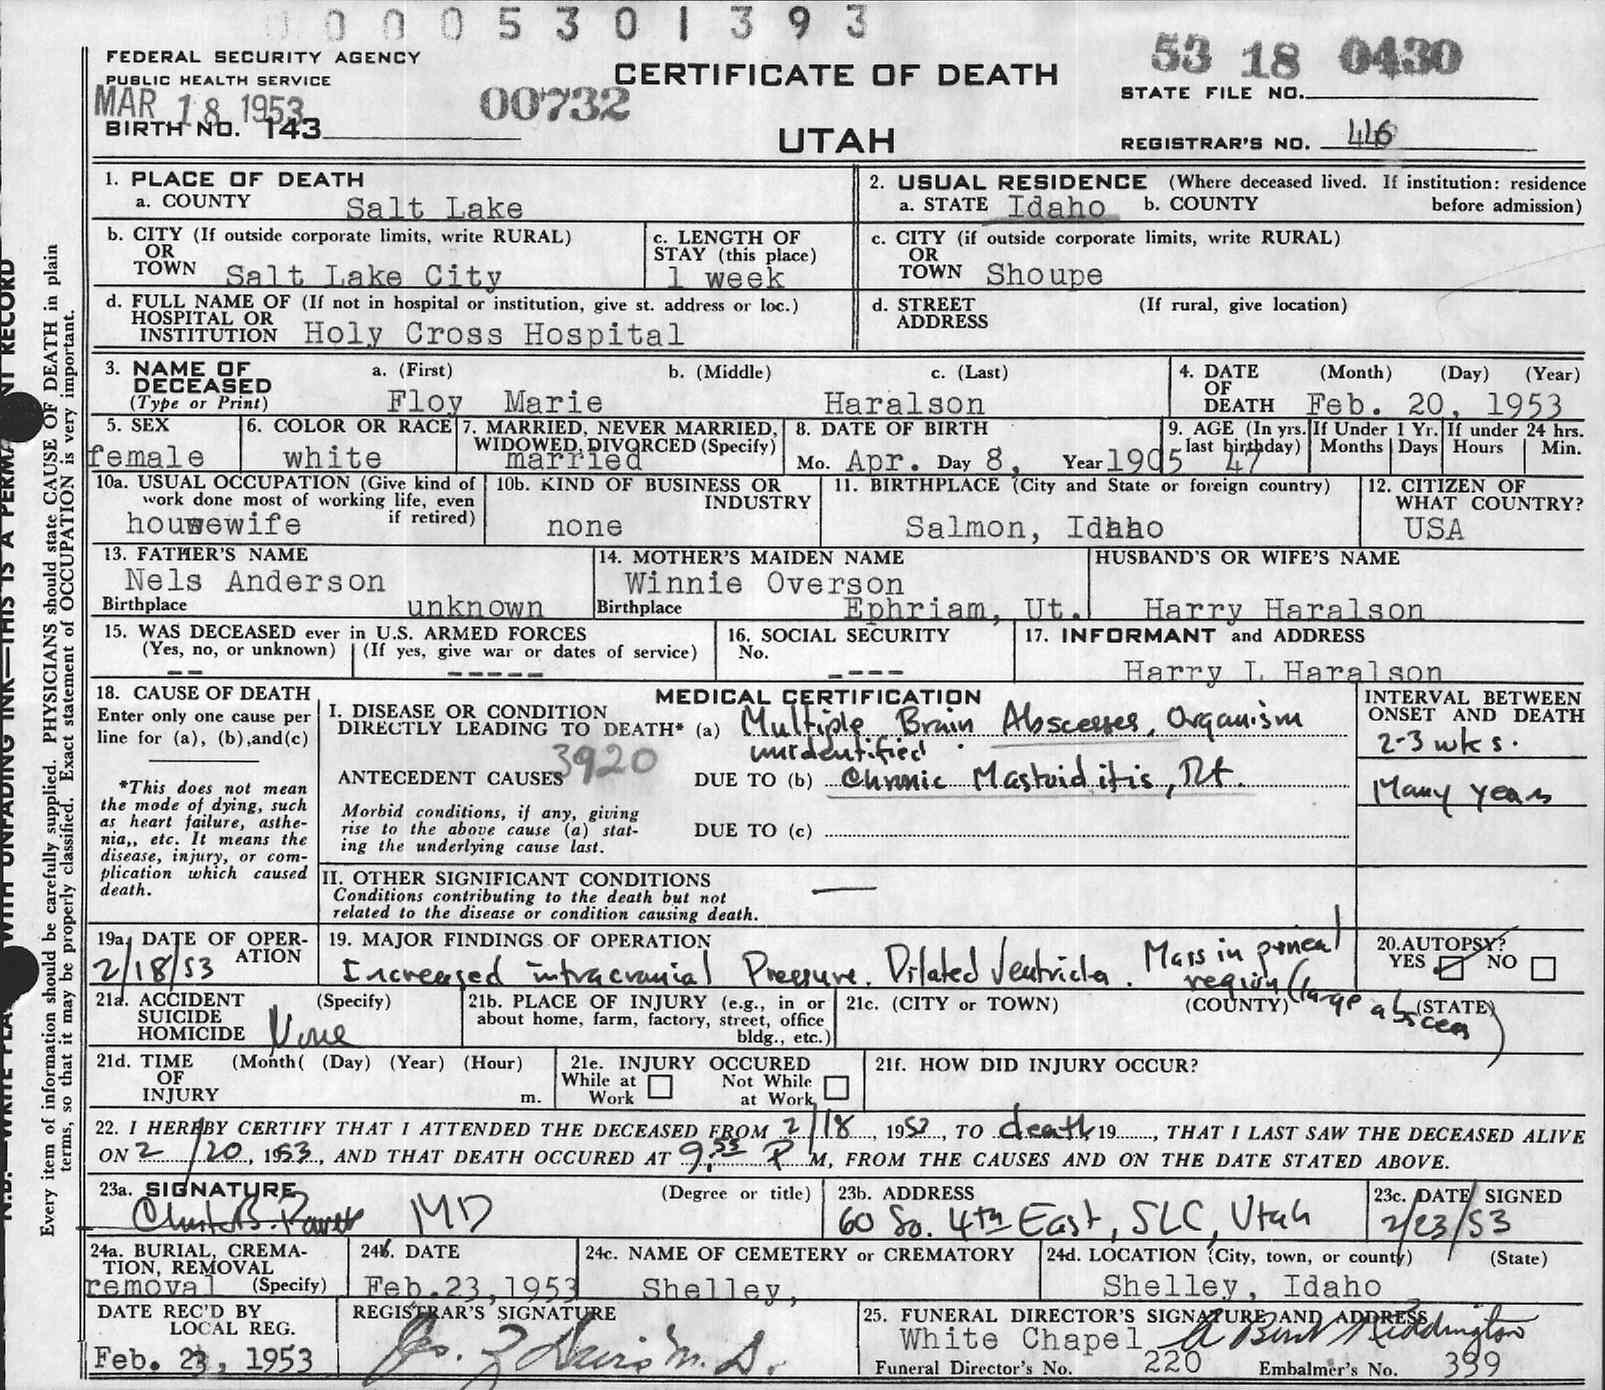 0 0 0 0 5 3 0 1 3 9 3
FEDERAL SECURITY AGENCY
PUBLIC HEALTH SERVICE
MAR 18 1953
BIRTH NO. 143
00732
CERTIFICATE OF DEATH
UTAH
53 18 0430
STATE FILE NO.
REGISTRAR'S NO. 446
1. PLACE OF DEATH
a. COUNTY Salt Lake
2. USUAL RESIDENCE (Where deceased lived. If institution: residence before admission)
a. STATE Idaho b. COUNTY
b. CITY (If outside corporate limits, write RURAL)
OR
TOWN Salt Lake City
c. LENGTH OF
STAY (this place)
1 week
c. CITY (if outside corporate limits, write RURAL)
OR
TOWN Shoupe
d. FULL NAME OF (If not in hospital or institution, give st. address or loc.)
HOSPITAL OR
INSTITUTION Holy Cross Hospital
d. STREET (If rural, give location)
ADDRESS
3. NAME OF
DECEASED
(Type or Print)
a. (First) b. (Middle) c. (Last)
Floy Marie Haralson
4. DATE (Month) (Day) (Year)
OF
DEATH Feb. 20, 1953
5. SEX
female
6. COLOR OR RACE
white
7. MARRIED, NEVER MARRIED,
WIDOWED, DIVORCED (Specify)
married
8. DATE OF BIRTH
Mo. Apr. Day 8, Year 1905
9. AGE (In yrs.
last birthday)
47
If Under 1 Yr.
Months Days
If under 24 hrs.
Hours Min.
10a. USUAL OCCUPATION (Give kind of
work done most of working life, even
if retired)
housewife
10b. KIND OF BUSINESS OR
INDUSTRY
none
11. BIRTHPLACE (City and State or foreign country)
Salmon, Idaho
12. CITIZEN OF
WHAT COUNTRY?
USA
13. FATHER'S NAME
Nels Anderson
Birthplace unknown
14. MOTHER'S MAIDEN NAME
Winnie Overson
Birthplace Ephriam, Ut.
HUSBAND'S OR WIFE'S NAME
Harry Haralson
15. WAS DECEASED ever in U.S. ARMED FORCES
(Yes, no, or unknown) (If yes, give war or dates of service)
-- -----
16. SOCIAL SECURITY
No.
----
17. INFORMANT and ADDRESS
Harry L Haralson
18. CAUSE OF DEATH
Enter only one cause per
line for (a), (b), and (c)
*This does not mean
the mode of dying, such
as heart failure, asthe-
nia,, etc. It means the
disease, injury, or com-
plication which caused
death.
MEDICAL CERTIFICATION
I. DISEASE OR CONDITION
DIRECTLY LEADING TO DEATH* (a) Multiple Brain Abscesses, Organism
unidentified.
3920
ANTECEDENT CAUSES DUE TO (b) Chronic Mastoiditis, Rt.
Morbid conditions, if any, giving
rise to the above cause (a) stat-
ing the underlying cause last.
DUE TO (c)
INTERVAL BETWEEN
ONSET AND DEATH
2-3 wks.
Many years
II. OTHER SIGNIFICANT CONDITIONS —
Conditions contributing to the death but not
related to the disease or condition causing death.
19a. DATE OF OPER-
ATION
2/18/53
19. MAJOR FINDINGS OF OPERATION
Increased intracranial Pressure. Dilated Ventricles. Mass in pineal
region (large abscess)
20. AUTOPSY?
YES ☑ NO ☐
21a. ACCIDENT (Specify)
SUICIDE
HOMICIDE None
21b. PLACE OF INJURY (e.g., in or
about home, farm, factory, street, office
bldg., etc.)
21c. (CITY or TOWN) (COUNTY) (STATE)
21d. TIME (Month( (Day) (Year) (Hour)
OF
INJURY m.
21e. INJURY OCCURED
While at Work ☐ Not While at Work ☐
21f. HOW DID INJURY OCCUR?
22. I HEREBY CERTIFY THAT I ATTENDED THE DECEASED FROM 2/18, 1953, TO death, 19......, THAT I LAST SAW THE DECEASED ALIVE
ON 2/20, 1953, AND THAT DEATH OCCURED AT 9:55 P M, FROM THE CAUSES AND ON THE DATE STATED ABOVE.
23a. SIGNATURE (Degree or title)
MD
23b. ADDRESS
60 So. 4th East, SLC, Utah
23c. DATE SIGNED
2/23/53
24a. BURIAL, CREMA-
TION, REMOVAL
removal (Specify)
24b. DATE
Feb. 23, 1953
24c. NAME OF CEMETERY or CREMATORY
Shelley,
24d. LOCATION (City, town, or county) (State)
Shelley, Idaho
DATE REC'D BY
LOCAL REG.
Feb. 23, 1953
REGISTRAR'S SIGNATURE
M.D.
25. FUNERAL DIRECTOR'S SIGNATURE AND ADDRESS
White Chapel
Funeral Director's No. 220 Embalmer's No. 399
Every item of information should be carefully supplied. PHYSICIANS should state CAUSE OF DEATH in plain
terms, so that it may be properly classified. Exact statement of OCCUPATION is very important.
WITH UNFADING INK—THIS IS A
RECORD